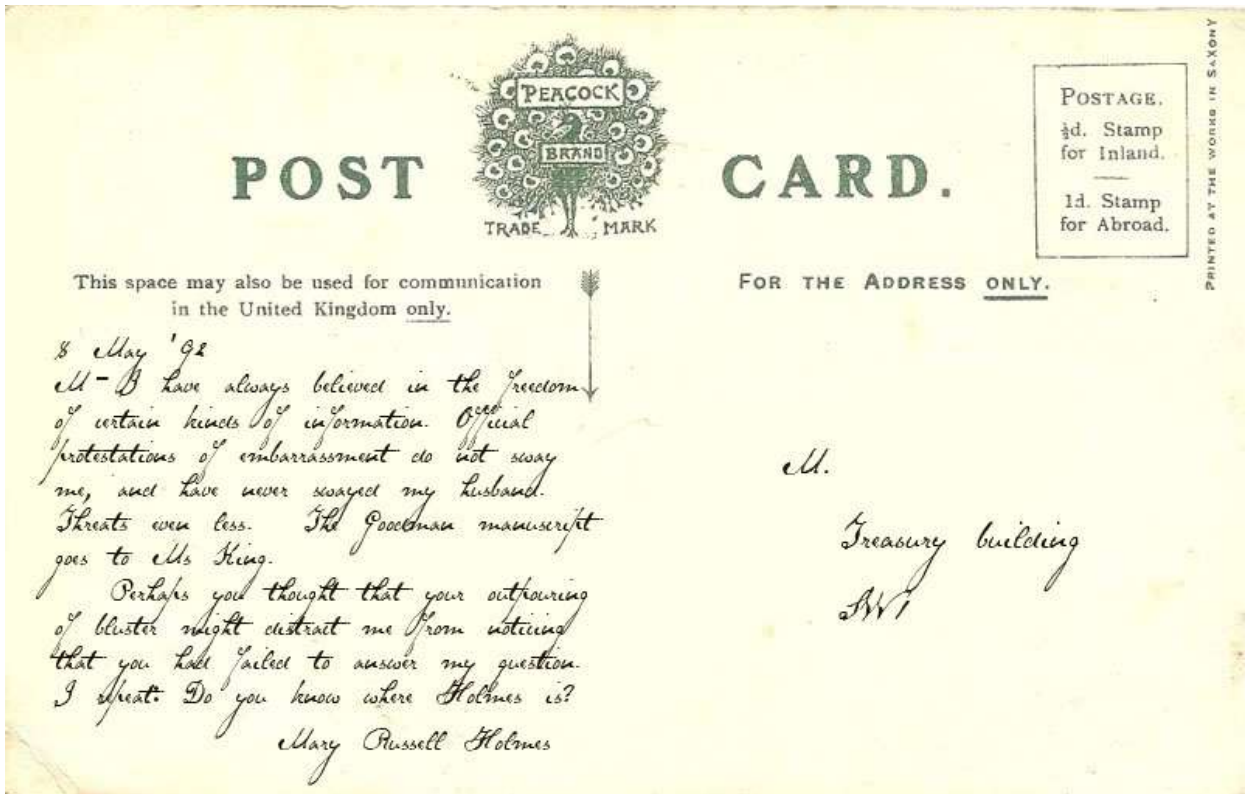 PEACOCK
BRAND
POST CARD.
TRADE MARK
POSTAGE.
½d. Stamp
for Inland.
1d. Stamp
for Abroad.
PRINTED AT THE WORKS IN SAXONY
This space may also be used for communication
in the United Kingdom only.
FOR THE ADDRESS ONLY.
8 May '92
M – I have always believed in the freedom
of certain kinds of information. Official
protestations of embarrassment do not sway
me, and have never swayed my husband.
Threats even less. The Goodman manuscript
goes to Ms King.
Perhaps you thought that your outpouring
of bluster might distract me from noticing
that you had failed to answer my question.
I repeat: Do you know where Holmes is?
Mary Russell Holmes
M.
Treasury building
SW1